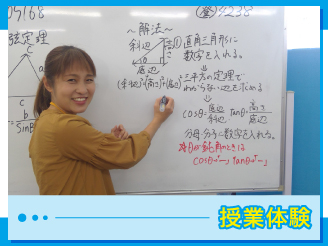 04168
登4238
弦定理
C
A
c
b
sinB
～解法～
斜辺
高さ
θ
底辺
①直角三角形に
数字を入れる。
(斜辺)²=(高さ)²+(底辺)²
三平方の定理で
わからない辺を求める
↓
cosθ=底辺/斜辺 tanθ=高さ/底辺
分母・分子に数字を入れる。
※θが鈍角のときは
cosθ→－, tanθ→－
授業体験